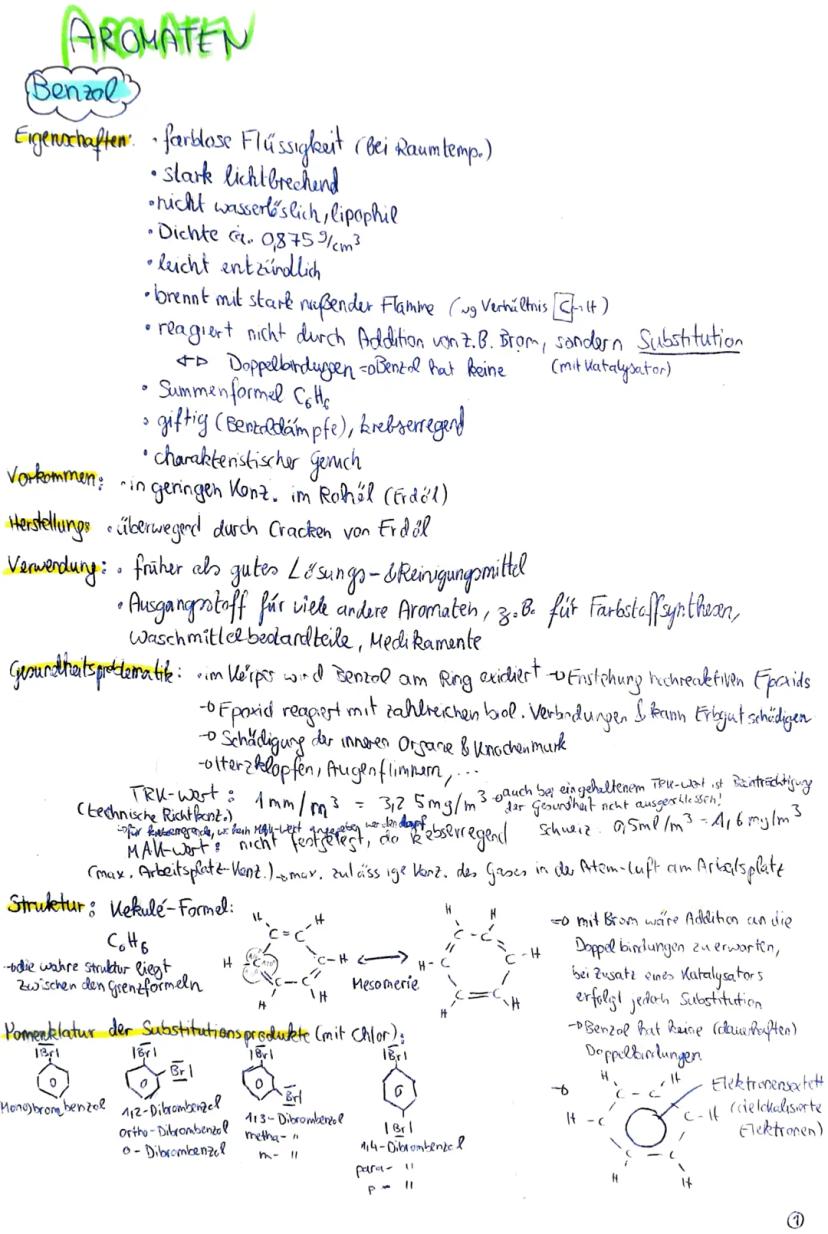 AROMATEN
Benzol
Eigenschaften: • farblose Flüssigkeit (bei Raumtemp.)
• stark lichtbrechend
• nicht wasserlöslich, lipophil
• Dichte ca. 0,875 g/cm³
• leicht entzündlich
• brennt mit stark rußender Flamme (wg Verhältnis C-H)
• reagiert nicht durch Addition von z.B. Brom, sondern Substitution
Doppelbindungen => Benzol hat keine (mit Katalysator)
• Summenformel C₆H₆
• giftig (Benzoldämpfe), krebserregend
• charakteristischer Geruch
Vorkommen: • in geringen Konz. im Rohöl (Erdöl)
Herstellung: • überwiegend durch Cracken von Erdöl
Verwendung: • früher als gutes Lösungs- & Reinigungsmittel
• Ausgangsstoff für viele andere Aromaten, z.B. für Farbstoffsynthesen,
Waschmittelbestandteile, Medikamente
Gesundheitsproblematik: • im Körper wird Benzol am Ring oxidiert → Enstehung hochreaktiven Epoxids
→ Epoxid reagiert mit zahlreichen biol. Verbindungen & kann Erbgut schädigen
→ Schädigung der inneren Organe & Knochenmark
→ Herzklopfen, Augenflimmern, ...
TRK-Wert: 1 mm/m³ = 3,25mg/m³ → auch bei eingehaltenem TRK-Wert ist Beinträchtigung
der Gesundheit nicht ausgeschlossen!
(technische Richtkonz.)
Schweiz: 0,5ml/m³ = 1,6 mg/m³
MAK-Wert: nicht festgelegt, da krebserregend
(max. Arbeitsplatz-Konz.) → max. zulässige Konz. des Gases in der Atem-Luft am Arbeitsplatz
Struktur: Kekulé-Formel:
C₆H₆
→ die wahre Struktur liegt
zwischen den Grenzformeln
H H
C=C
H C C-H
C-C
H H
Mesomerie
H H
C-C
H-C C-H
C=C
H H
=> mit Brom wäre Addition an die
Doppelbindungen zu erwarten,
bei Zusatz eines Katalysators
erfolgt jedoch Substitution
→ Benzol hat keine (dauerhaften)
Doppelbindungen
Nomenklatur der Substitutionsprodukte (mit Chlor):
|Br|
Mono)brombenzol
|Br|
Br|
1,2-Dibrombenzol
ortho-Dibrombenzol
o-Dibrombenzol
|Br|
Br|
1,3-Dibrombenzol
metha- "
m- "
|Br|
|Br|
1,4-Dibrombenzol
para- "
p- "
H H
C-C
H-C C-H
C-C
H H
Elektronensextett
(delokalisierte
Elektronen)
1